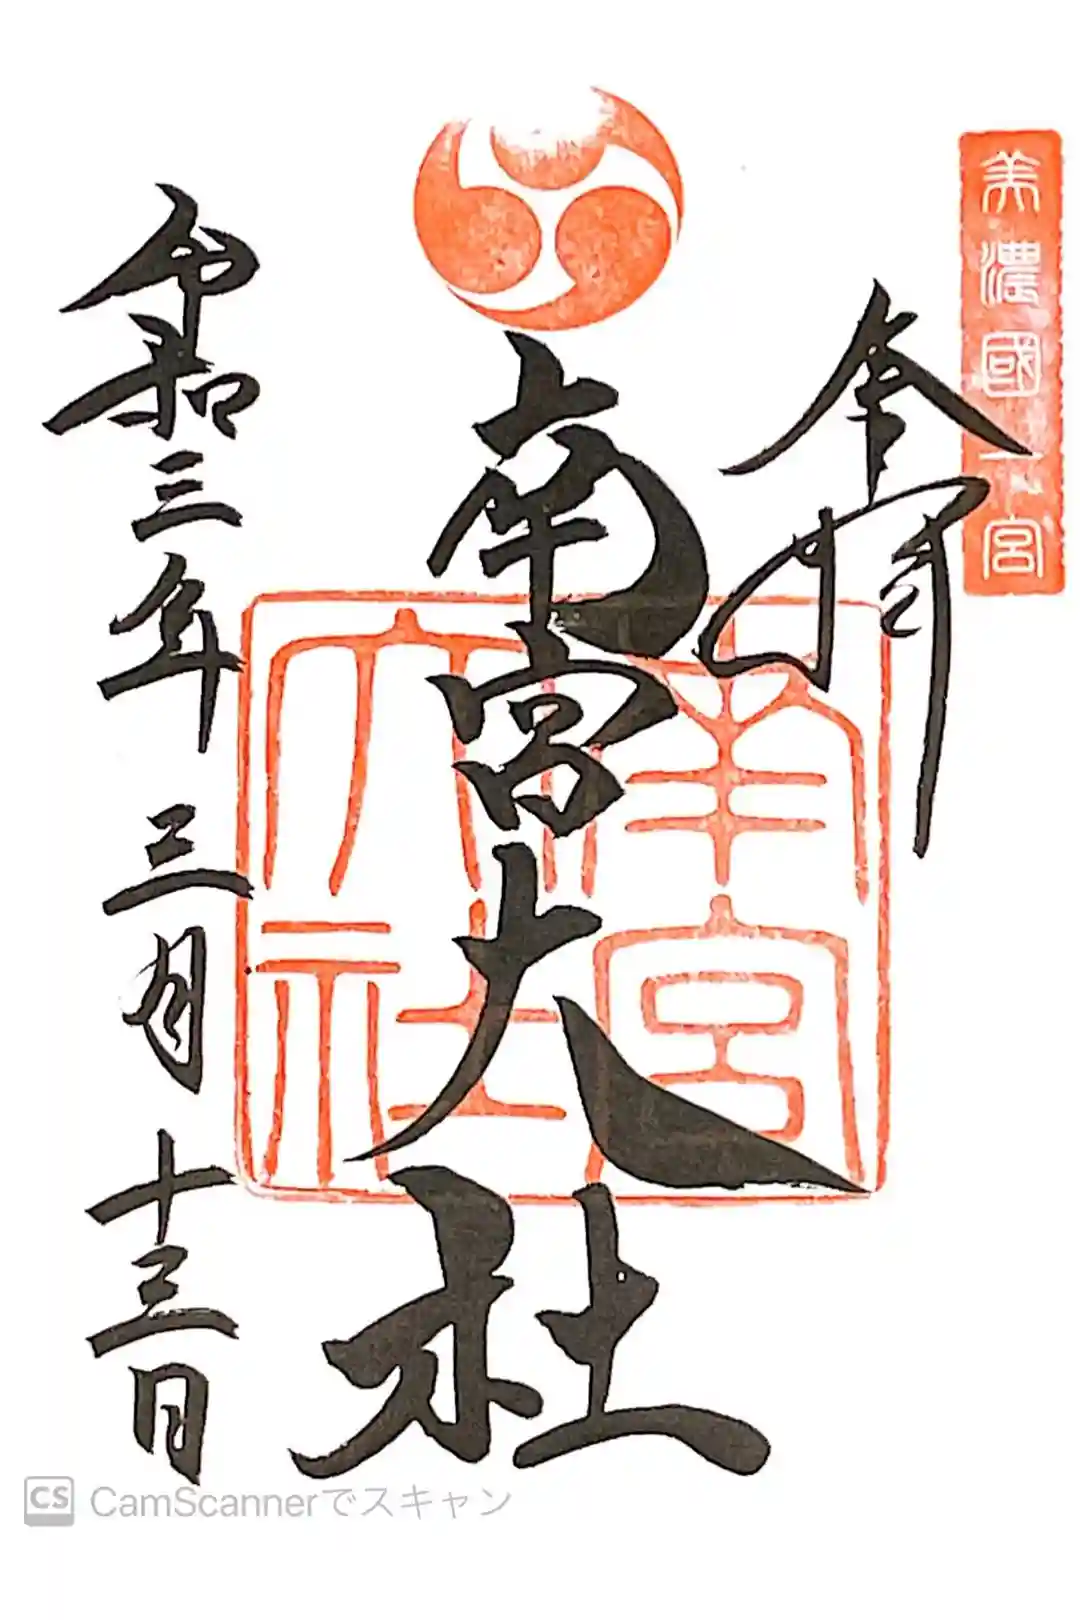 美濃國一宮
奉拝
南宮大社
南宮
大社
令和三年 三月 十三日
CS CamScannerでスキャン